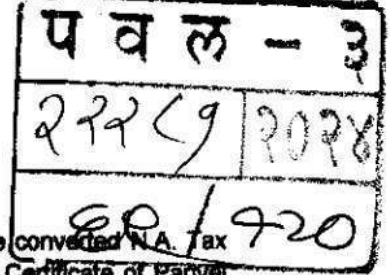 प व ल - ३
२२२८१ २०२४
/ १२०
converted N.A. Tax
Certificate of Panvel